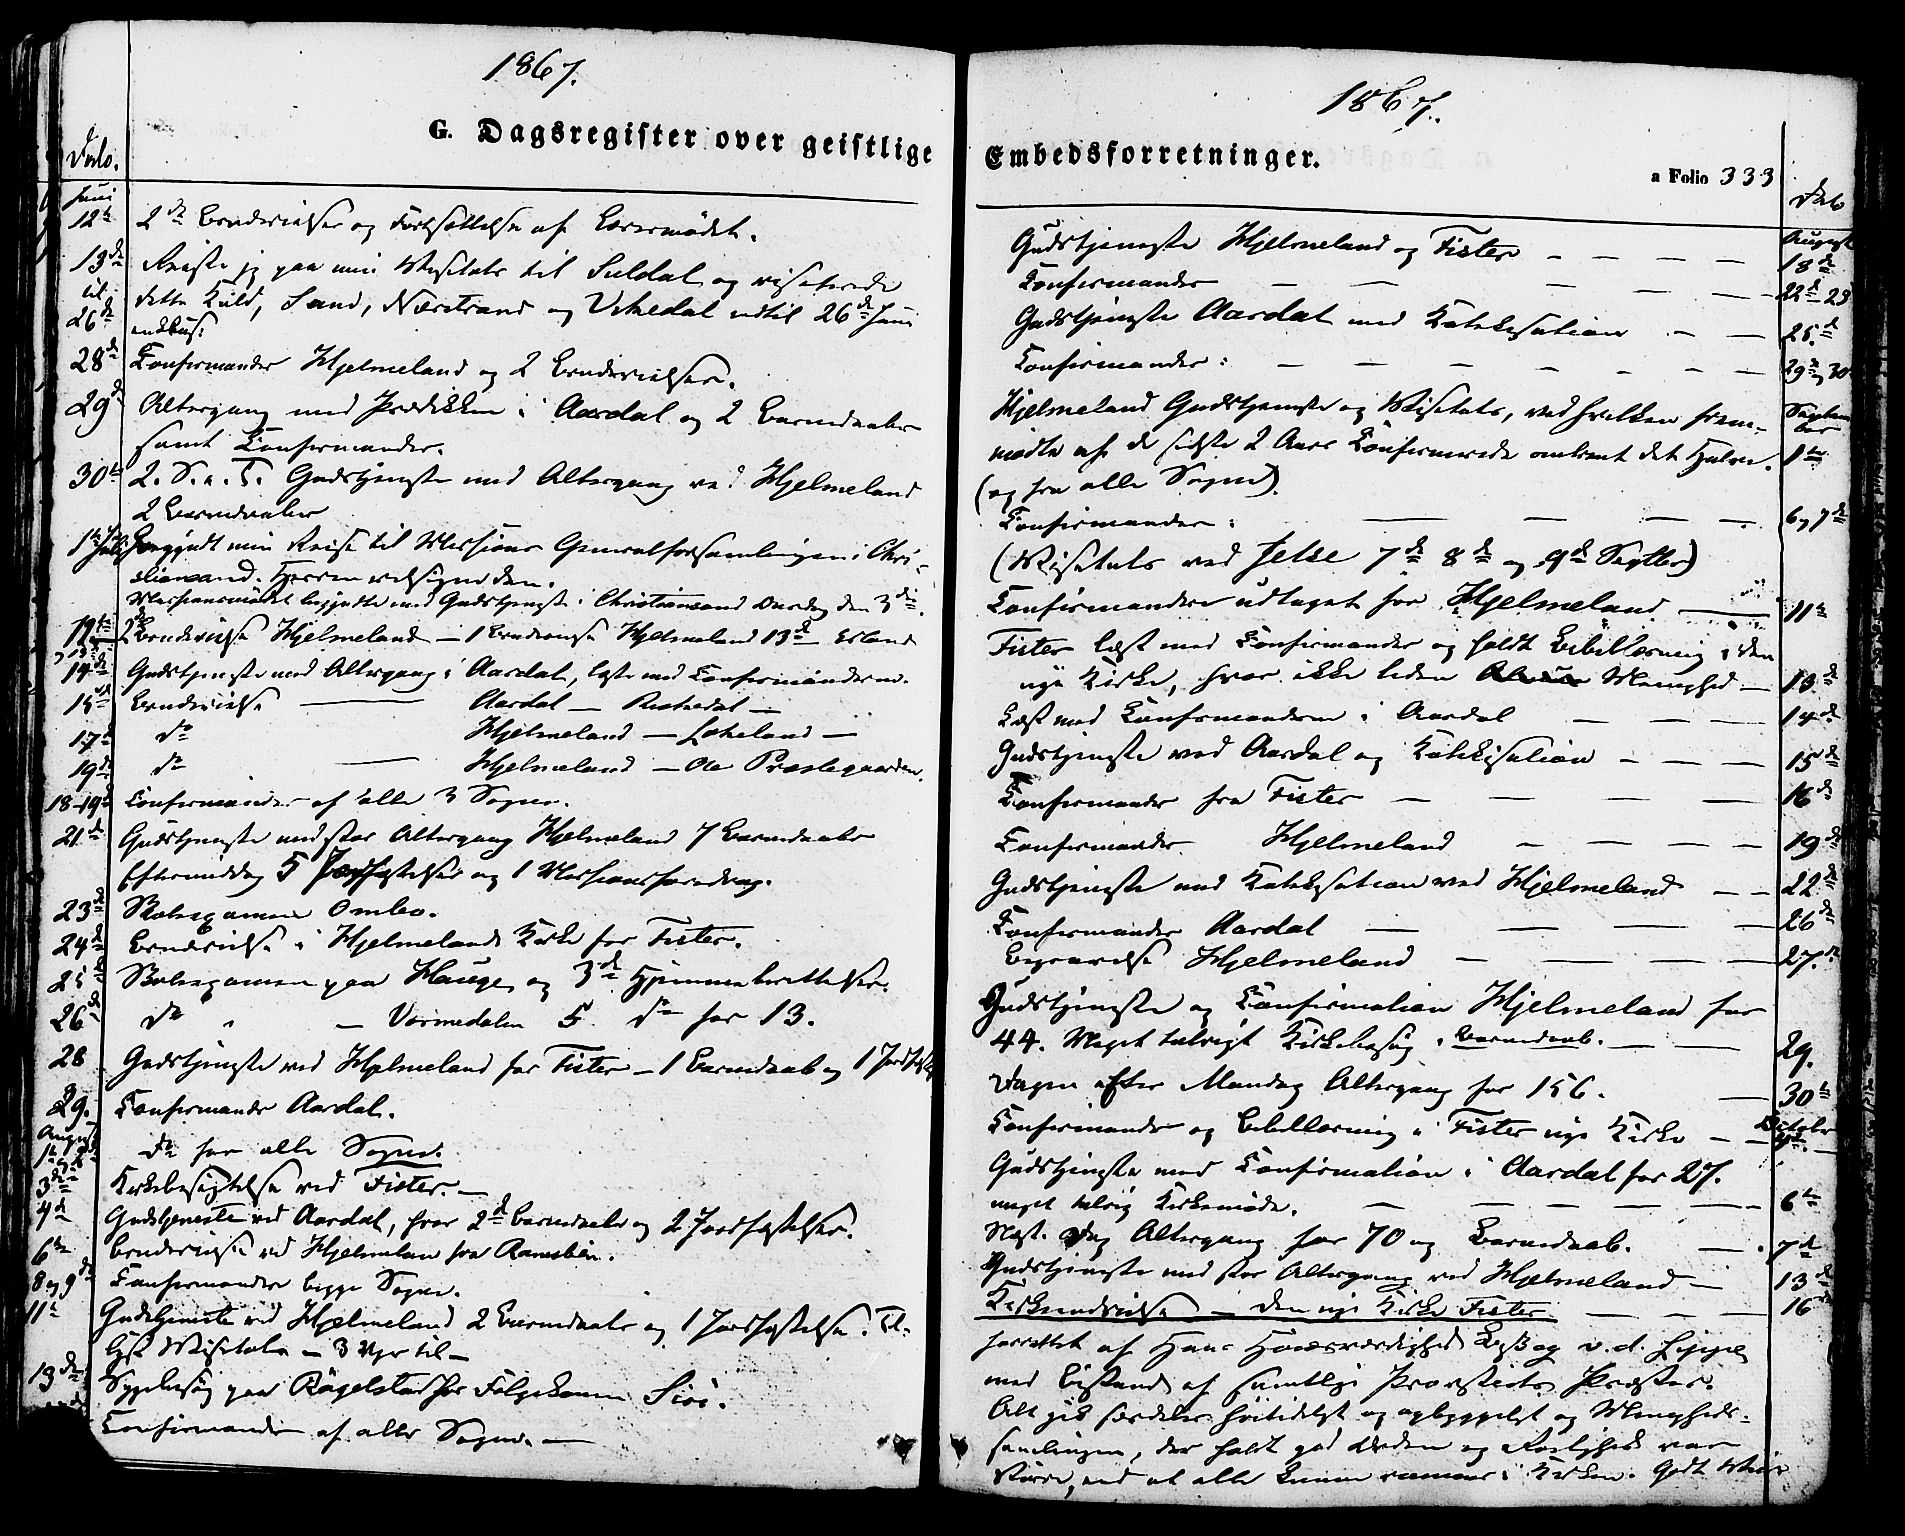 1867.
G. Dagsregister over geistlige
Dato.
Juni
12te 2de Brudevielser og Fortsættelse af Læremødet.
13de Reiste jeg paa min Visitats til Suldal og visiterede
til dette Kald, Sand, Nærstrand og Vikedal indtil 26de Juni
26de inclus:
28de Confirmander Hjelmeland og 2 Brudevielser.
29de Altergang med Prædiken i Aardal og 2 Barnedaabe
samt Confirmander.
30te 2. S. e. T. Gudstjeneste med Altergang ved Hjelmeland
2 Barnedaabe
1ste Juli Begyndt min Reise til Missions Generalforsamlingen i Chri-
stiansand. Herren velsigne den.
Missionsmødet begyndte med Gudstjeneste i Christiansand Onsdag den 3die.
12te Brudevielse Hjelmeland — 1 Brudevielse Hjelmeland 13de Erland
14de Gudstjeneste med Altergang i Aardal, læste med Confirmanderne.
15de Brudevielse — Aardal — Riskedal —
17de do Hjelmeland — Lækeland —
19de do — Hjelmeland — Præstegaarden.
18-19de Confirmander af alle 3 Sogne.
21de Gudstjeneste med stor Altergang Hjelmeland 7 Barnedaabe
Eftermiddag 5 Jordfæstelser og 1 Missionsforedrag.
23de Skoleexamen Ombo.
24de Brudevielse i Hjelmelands Kirke for Fister.
25de Skoleexamen paa Hauge og 3de Hjemmeberettelser.
26de do — Vormedalen 5 do for 13.
28 Gudstjeneste ved Hjelmeland for Fister — 1 Barnedaab og 1 Jordfæst
29. Confirmander Aardal.
August
do for alle Sogne.
3die Kirkebesigtelse ved Fister. —
4de Gudstjeneste ved Aardal, hvor 2de Barnedaabe og 2 Jordfæstelser.
6te Brudevielse ved Hjelmeland fra
8 og 9de Confirmander begge Sogne.
11te Gudstjeneste ved Hjelmeland 2 Barnedaabe og 1 Jordfæstelse. Til-
lyst Visitats — 3 til —
13de Sygebesøg paa
Confirmander af alle Sogne. —
1867.
Embedsforretninger.
a Folio 333
Dato
Gudstjeneste Hjelmeland og Fister — — — — August 18de
Confirmander — — — — 22de 23
Gudstjeneste Aardal med Katekisation — — 25de
Confirmander: — — — — — — 29de og 30
Hjelmeland Gudstjeneste og Visitats, ved hvilken frem- September
mødte af de sidste 2 Aars Confirmerede omtrent det Halve. 1ste
(og fra alle Sogne).
Confirmander: — — — — 6 og 7de
(Visitats ved Jelse 7de 8de og 9de Septbr)
Confirmander udtaget for Hjelmeland — 11te
Fister læst med Confirmander og holdt Bibellæsning i den
nye Kirke, hvor ikke liden Menighed — 13de
Læst med Confirmanderne i Aardal — — — 14de
Gudstjeneste ved Aardal og Katekisation — — — — 15de
Confirmander fra Fister — — — — 16de
Confirmander Hjelmeland — — — — 19de
Gudstjeneste med Katekisation ved Hjelmeland — — 22de
Confirmander Aardal — — — — 26de
Begravelse Hjelmeland — — — — 27de
Gudstjeneste og Confirmation Hjelmeland for
44. Meget talrigt Kirkebesøg. Barnedaab. — — 29.
Dagen efter Mandag Altergang for 156. — 30te
Confirmander og Bibellæsning i Fister nye Kirke — — October
Gudstjeneste med Confirmation i Aardal for 27.
meget talrig Kirkemøde. — — — — — — 6te
Næst. Dag Altergang for 70 og Barnedaab. — 7de
Gudstjeneste med stor Altergang ved Hjelmeland — 13de
Kirkeindvielse — Den nye Kirke Fister. — — — 16de
forrettet af Hans Høiærværdighed Biskop v. d. Lippe
med Bistand af samtlige Provstiets Præster.
Alt gik særdeles høitideligt og opbyggeligt og Menigheds-
samlingen, der holdt god Orden og Rolighed var
større, end at alle kunne rummes i Kirken. Godt Veir